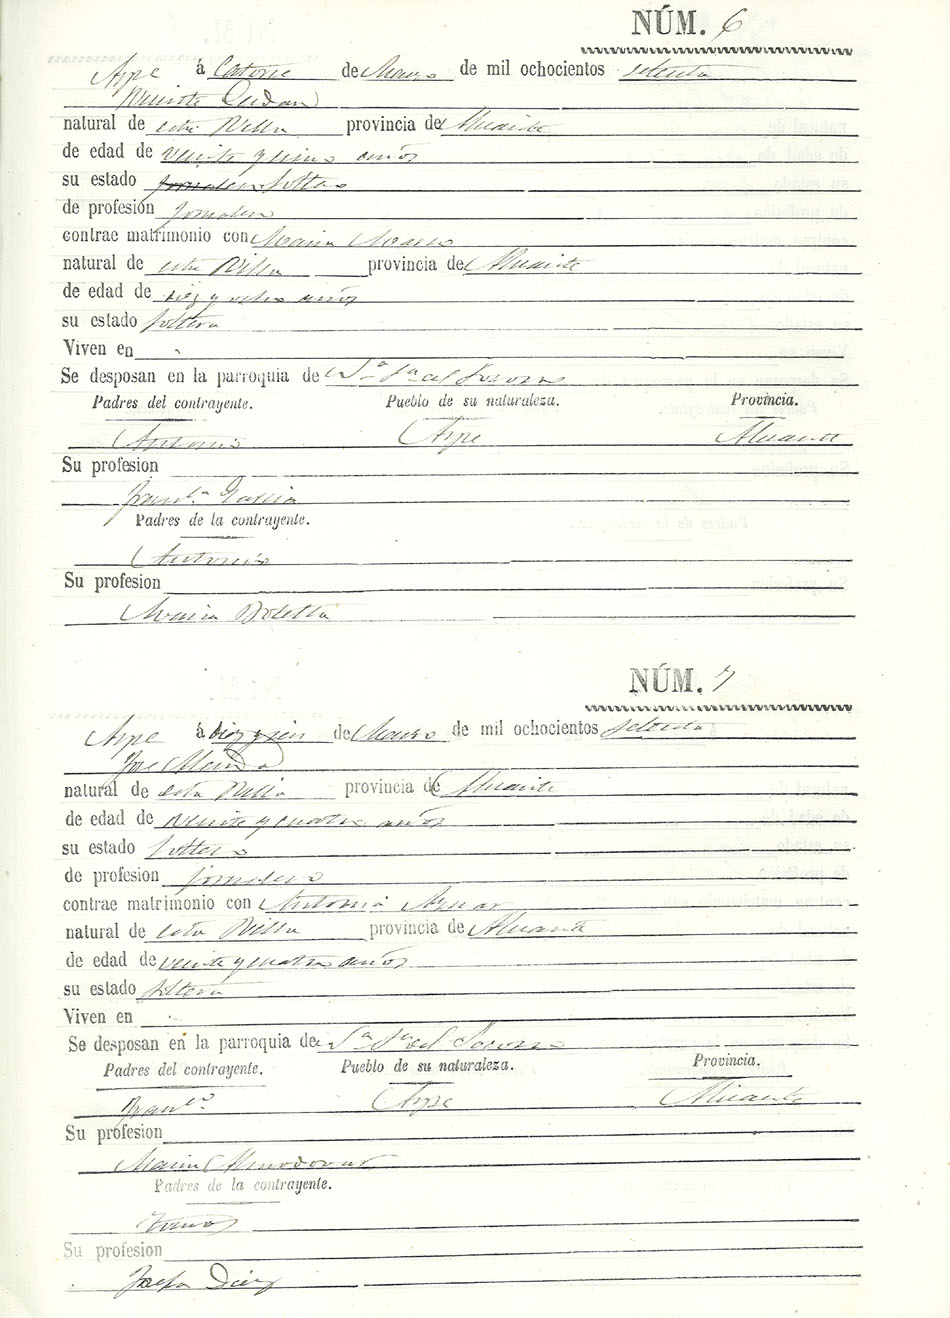 NÚM. 6
Aspe á Catorce de Marzo de mil ochocientos setenta
Vicente
natural de esta Villa provincia de Alicante
de edad de veinte y cinco años
su estado Soltero
de profesión Jornalero
contrae matrimonio con Maria
natural de esta Villa provincia de Alicante
de edad de diez y ocho años
su estado Soltera
Viven en
Se desposan en la parroquia de Nª Sª del Socorro
Padres del contrayente. Pueblo de su naturaleza. Provincia.
Antonio Aspe Alicante
Su profesion
Franca Garcia
Padres de la contrayente.
Antonio
Su profesion
Maria Botella
NÚM. 7
Aspe á diez y seis de Marzo de mil ochocientos setenta
Jose
natural de esta Villa provincia de Alicante
de edad de veinte y cuatro años
su estado Soltero
de profesión jornalero
contrae matrimonio con Antonia Aznar
natural de esta Villa provincia de Alicante
de edad de veinte y cuatro años
su estado soltera
Viven en
Se desposan en la parroquia de Nª Sª del Socorro
Padres del contrayente. Pueblo de su naturaleza. Provincia.
Franco Aspe Alicante
Su profesión
Maria Almodovar
Padres de la contrayente.
Tomas
Su profesion
Josefa Diez